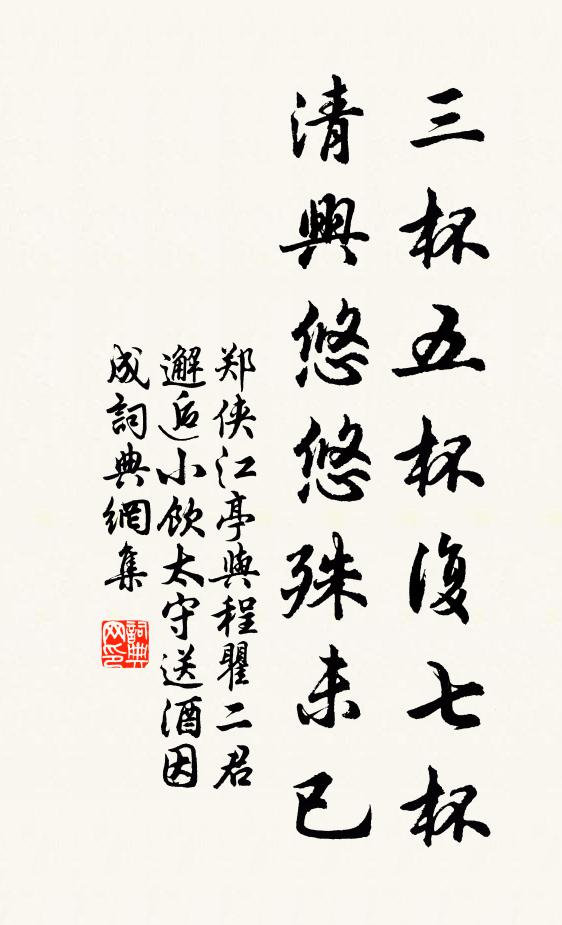 三杯五杯復七杯
清興悠悠殊未已
郑侠江亭與程瞿二君
邂逅小飲太守送酒因
成詞典網集
詞典网印